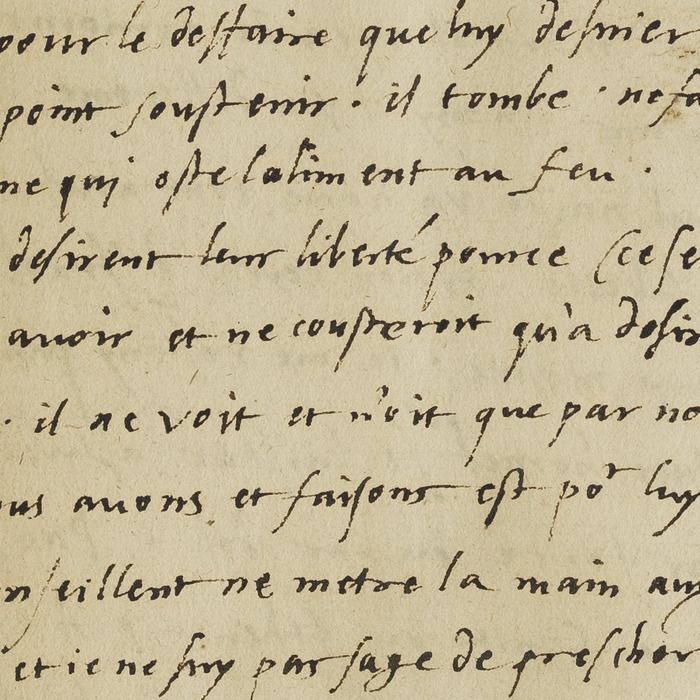 pour le deffaire que luy desnier
point soustenir . il tombe . ne fa
ne qui oste laliment au feu .
desirent leur liberté pource (ce se
avoir et ne cousteroit qu'a desir
. il ne voit et n'oit que par no
ous avons et faisons est po^r luy
nseillent ne metre la main aux
et ie ne suy pas sage de prescher